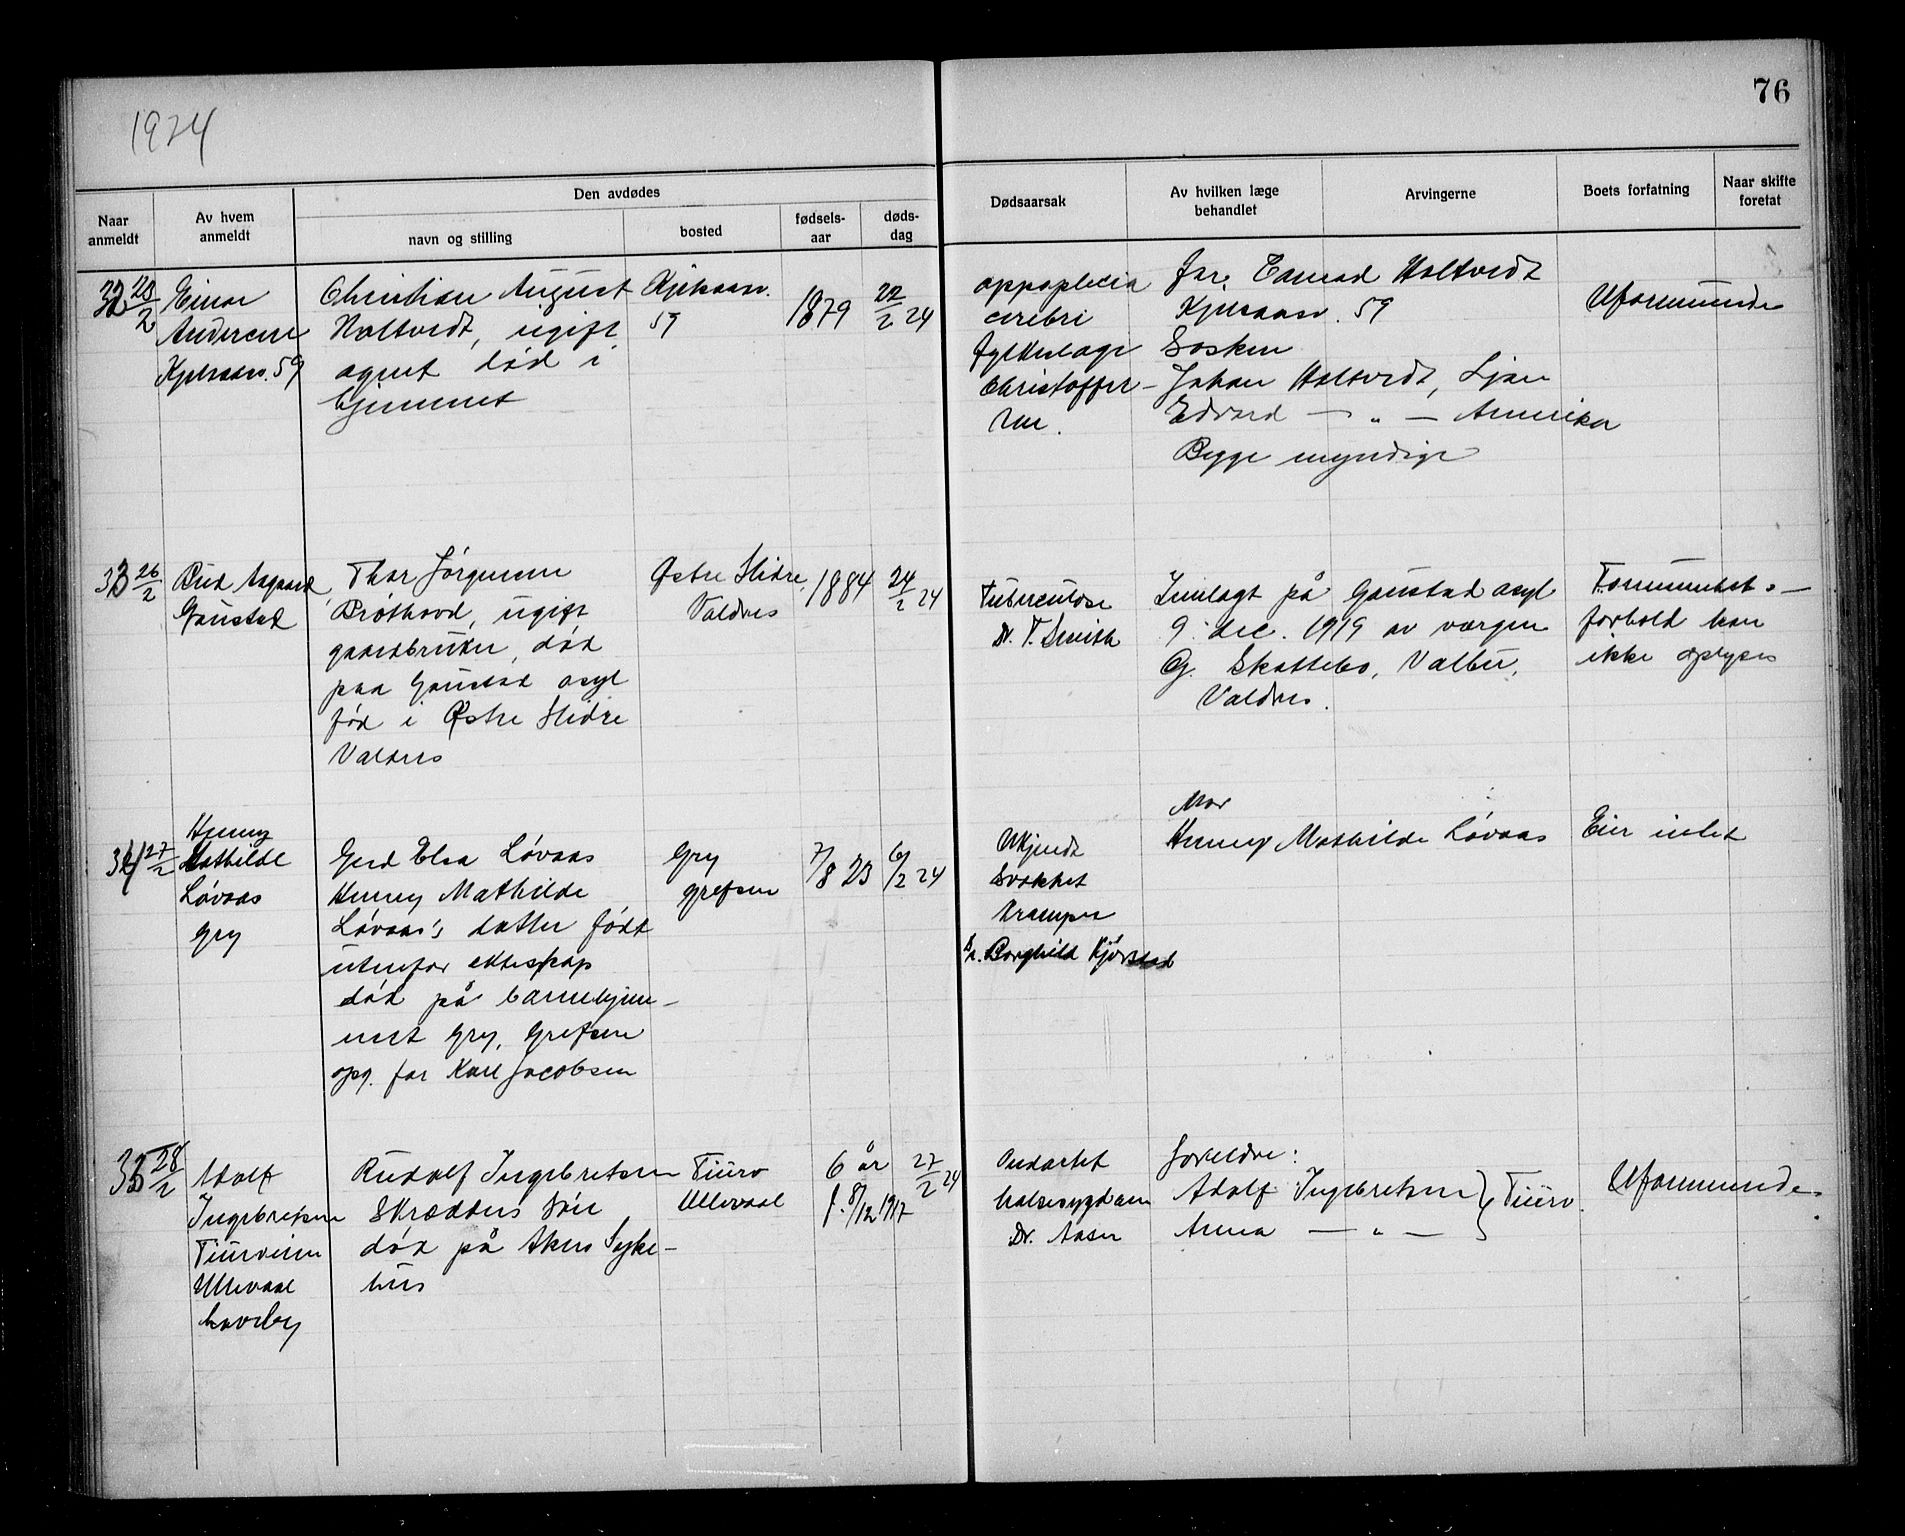 1924
76
Den avdødes
Naar anmeldt
Av hvem anmeldt
navn og stilling
bosted
fødsels-aar
døds-dag
Dødsaarsak
Av hvilken læge behandlet
Arvingerne
Boets forfatning
Naar skifte foretat
32 23/2
Einar
Andersen
Kjelsaasv. 59
Christian August
Holtvedt, ugift
agent død i
hjemmet
Kjelsaasv.
59
1879
22/2 24
appoplecia
cerebri
fylkeslæge
Christoffer-
sen.
far, Conrad Holtvedt
Kjelsaasv. 59
Søsken
Johan Holtvedt, Ljan
Edvard — " — Amerika
Begge myndige
Uformuende
33 26/2
Rud Asgaard
Gaustad
Thor Jørgensen
Bróthovd, ugift
gaardbruker, død
paa Gaustad asyl
fød i Østre Slidre
Valdres
Østre Slidre,
Valdres
1884
24/2 24
Tuberculose
Dr. T. Smith
Innlagt på Gaustad asyl
9. dec. 1919 av vergen
G. Skattebo, Volbu,
Valdres.
Formuets-
forhold kan
ikke oplyses
34 27/2
Henny
Mathilde
Løvaas
Gry
Gerd Elsa Løvaas
Henny Mathilde
Løvaas's datter født
utenfor ekteskap
død på barnehjem-
met Gry, Grefsen
opg. far Karl Jacobsen
Gry
Grefsen
7/8 23
6/2 24
Ukjendt
Svakhet
Kramper
Dr. Borghild Kjørstad
Mor
Henny Mathilde Løvaas
Eier intet
35 28/2
Adolf
Ingebretsen
Tiurveien
Ullevaal
haveby
Rudolf Ingebretsen
Skrædders søn
død på Akers Syke-
hus
Tiurv
Ullevaal
6 år
f. 8/12 1917
27/2 24
Ondartet
halssygdom
Dr. Aaser
forældre:
Adolf Ingebretsen } Tiurv.
Anna — " —
Uformuende